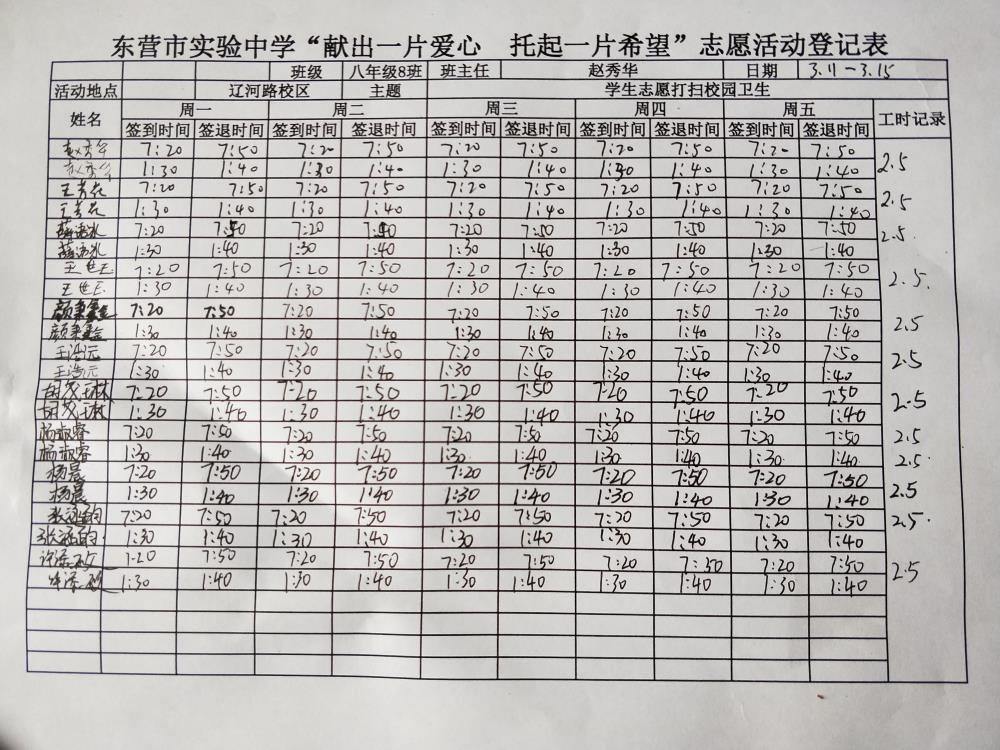 东营市实验中学“献出一片爱心 托起一片希望”志愿活动登记表
班级 八年级8班 班主任 赵秀华 日期 3.11-3.15
活动地点 辽河路校区 主题 学生志愿打扫校园卫生
姓名 周一 周二 周三 周四 周五 工时记录
签到时间 签退时间 签到时间 签退时间 签到时间 签退时间 签到时间 签退时间 签到时间 签退时间
7:20 7:50 7:20 7:50 7:20 7:50 7:20 7:50 7:20 7:50
1:30 1:40 1:30 1:40 1:30 1:40 1:30 1:40 1:30 1:40 2.5
王芳花 7:20 7:50 7:20 7:50 7:20 7:50 7:20 7:50 7:20 7:50
王芳花 1:30 1:40 1:30 1:40 1:30 1:40 1:30 1:40 1:30 1:40 2.5
7:20 7:50 7:20 7:50 7:20 7:50 7:20 7:50 7:20 7:50 2.5.
1:30 1:40 1:30 1:40 1:30 1:40 1:30 1:40 1:30 1:40
王世玉 7:20 7:50 7:20 7:50 7:20 7:50 7:20 7:50 7:20 7:50
王世玉 1:30 1:40 1:30 1:40 1:30 1:40 1:30 1:40 1:30 1:40 2.5.
颜秉鑫 7:20 7:50 7:20 7:50 7:20 7:50 7:20 7:50 7:20 7:50
颜秉鑫 1:30 1:40 1:30 1:40 1:30 1:40 1:30 1:40 1:30 1:40 2.5
王浩元 7:20 7:50 7:20 7:50 7:20 7:50 7:20 7:50 7:20 7:50
王浩元 1:30 1:40 1:30 1:40 1:30 1:40 1:30 1:40 1:30 1:40 2.5
胡茂琳 7:20 7:50 7:20 7:50 7:20 7:50 7:20 7:50 7:20 7:50
胡茂琳 1:30 1:40 1:30 1:40 1:30 1:40 1:30 1:40 1:30 1:40 2.5
杨淑睿 7:20 7:50 7:20 7:50 7:20 7:50 7:20 7:50 7:20 7:50 2.5
杨淑睿 1:30 1:40 1:30 1:40 1:30 1:40 1:30 1:40 1:30 1:40 2.5.
杨晨 7:20 7:50 7:20 7:50 7:20 7:50 7:20 7:50 7:20 7:50
杨晨 1:30 1:40 1:30 1:40 1:30 1:40 1:30 1:40 1:30 1:40 2.5
7:20 7:50 7:20 7:50 7:20 7:50 7:20 7:50 7:20 7:50 2.5.
1:30 1:40 1:30 1:40 1:30 1:40 1:30 1:40 1:30 1:40
1:20 7:50 7:20 7:50 7:20 7:50 7:20 7:50 7:20 7:50
1:30 1:40 1:30 1:40 1:30 1:40 1:30 1:40 1:30 1:40 2.5